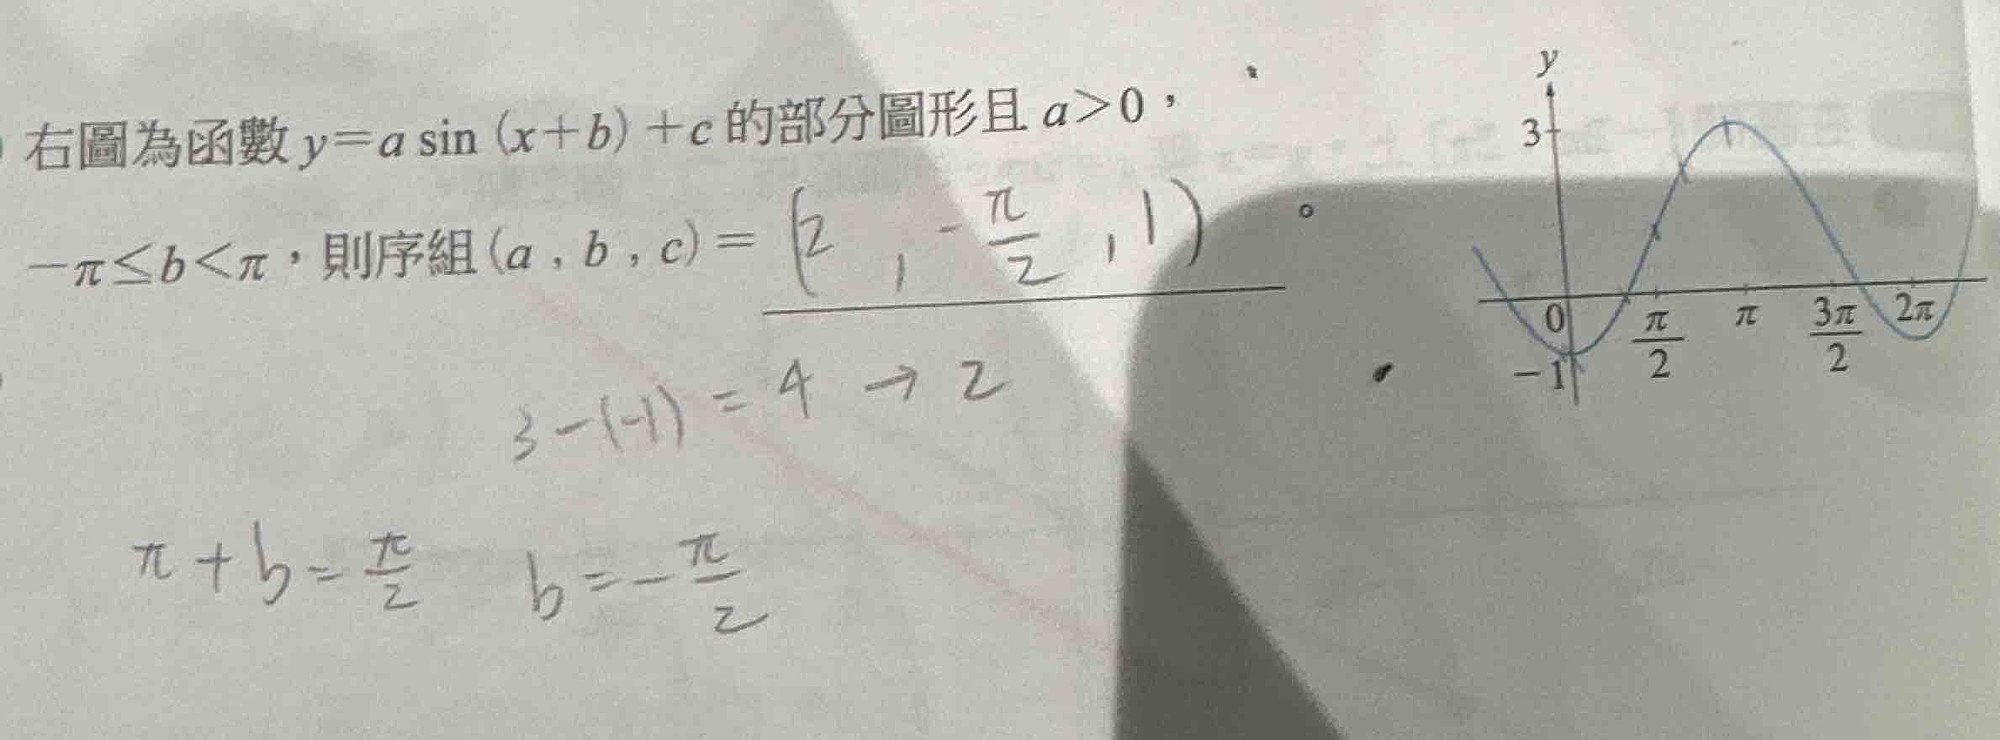 右圖為函數 y=a sin (x+b) +c 的部分圖形且 a>0，
-π≤b<π，則序組(a , b , c) = (2 , -π/2 , 1) 。
3-(-1) = 4 → 2
π + b = π/2   b = -π/2
y
3
0 π/2 π 3π/2 2π
-1